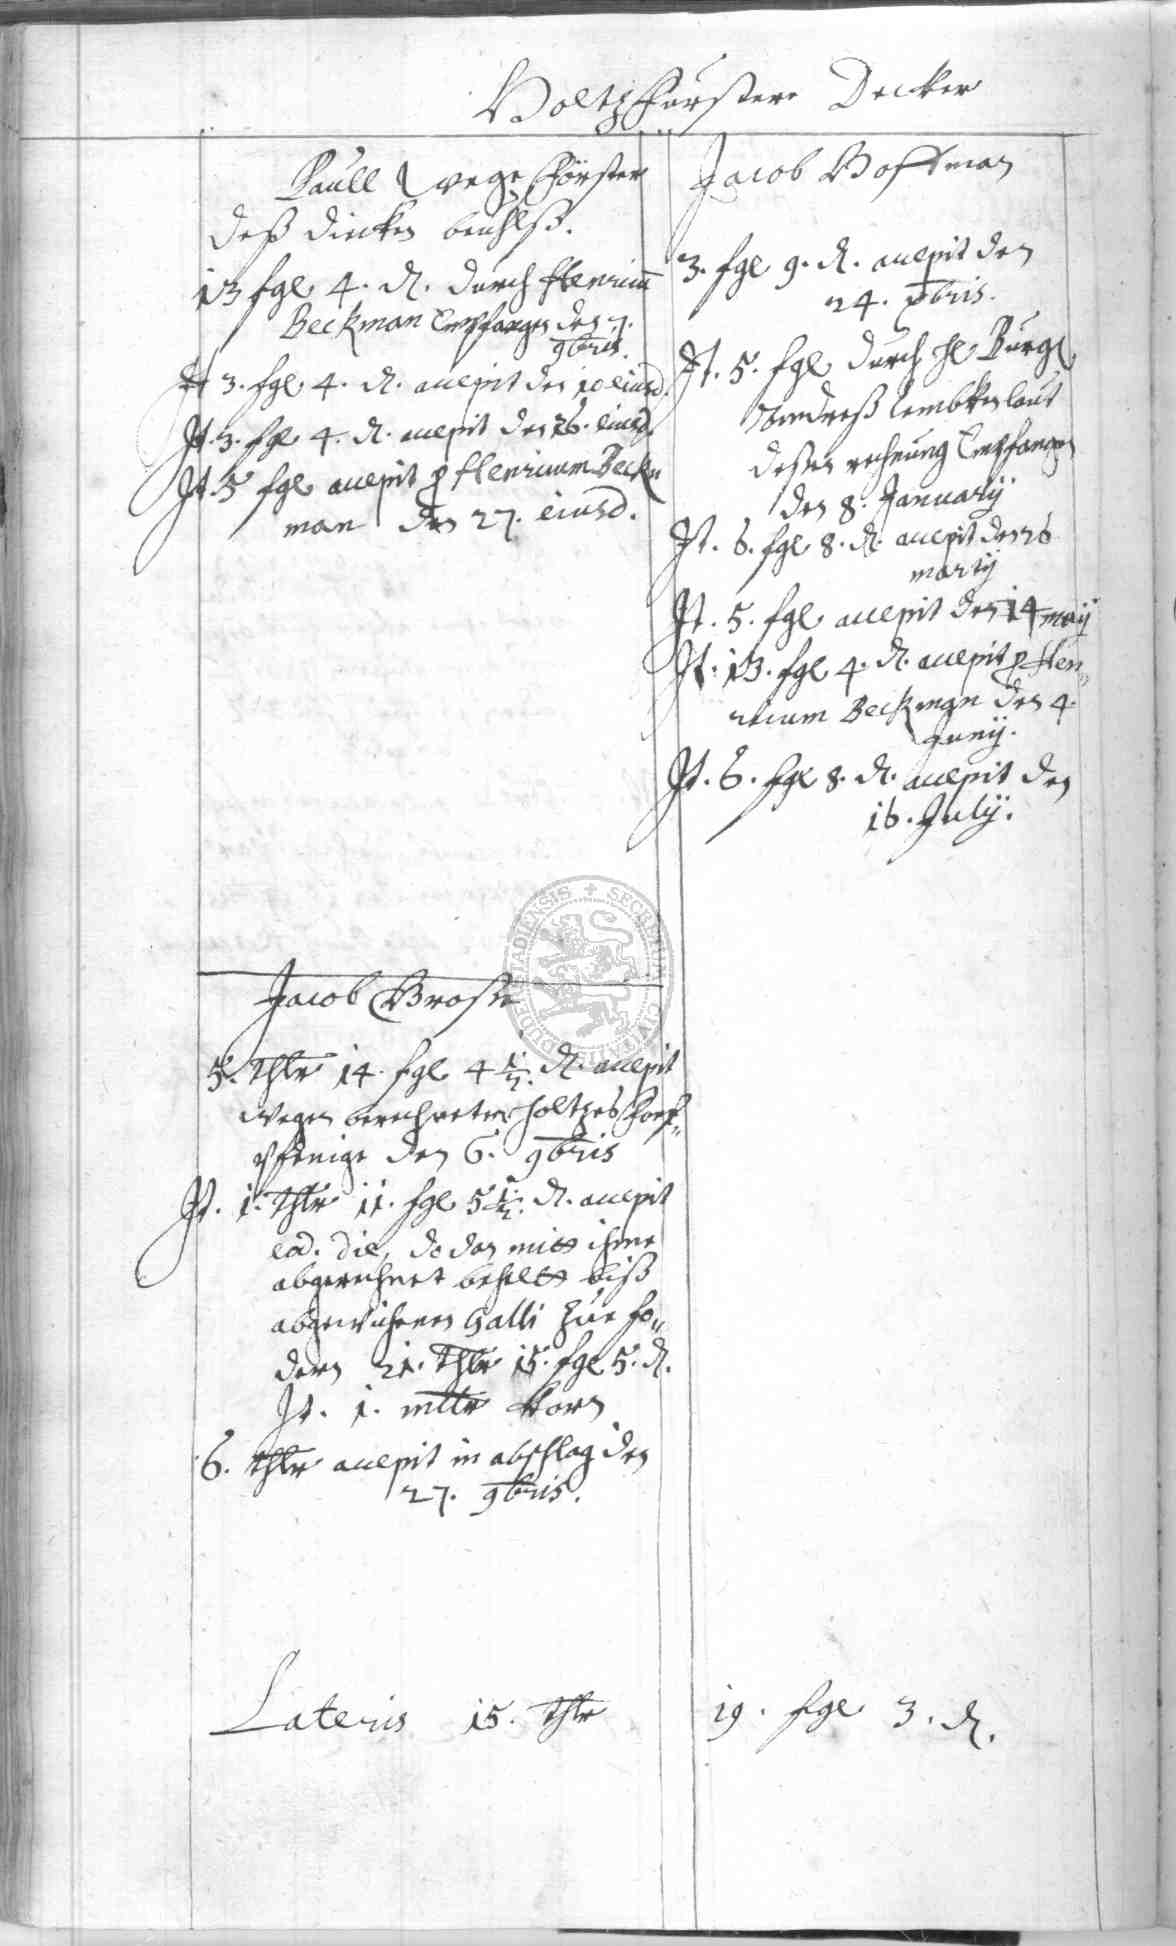 Holtz Furster Decker
Paull wege Förster
deß dicken
13 fgl 4. d. durch Henricum
Beckman Empfangen den 7.
9bris.
It 3. fgl 4. d. accepit den 10 eiusd.
It. 3. fgl 4. d. accepit den 26. eiusd.
It. 5 fgl accepit p Henricum Beck
man den 27. eiusd.
Jacob Große
5. thlr 14. fgl 4 1/2. d. accepit
wegen berechneter holtzes
pfenige den 6. 9bris
It. 1. thlr 11. fgl 5 1/2. d. accepit
eod. die, do dan mitt ihme
abgerechnet behelt biß
abgewichenen Galli zue fo„
dern 21. thlr 15. fgl 5. d.
It. 1. mltr Korn
6. thlr accepit in abschlag den
27. 9bris.
Jacob Hoffman
3. fgl 9. d. accepit den
24. xbris.
It. 5. fgl durch H. Burg
Andreß Lembken laut
deßen rechnung Empfangen
den 8. January
It. 6. fgl 8. d. accepit den 26
martij
It. 5. fgl accepit den 14 maij
It. 13. fgl 4. d. accepit p Hen„
ricum Beckman den 4.
Junij.
It. 6. fgl 8. d. accepit den
16. July.
Lateris 15. thlr 19. fgl 3. d.
SECRETUM CIVITATIS DUDERSTADIENSIS